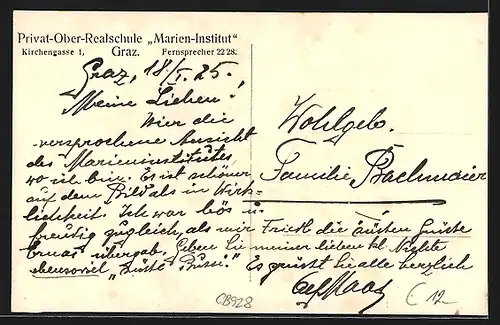 Privat-Ober-Realschule „Marien-Institut"
Kirchengasse 1, Graz. Fernsprecher 2228.
Graz, 18/I. 25.
Meine Lieben!
Hier die
versprochene Ansicht
des Marieninstitutes,
wo ich bin. Es ist schöner
auf dem Bild als in Wirk-
lichkeit. Ich war bös u.
freudig zugleich, als mir Friedl die
übergab. Geben Sie meiner lieben kl. Nichte
ebensoviel
Es grüßt Sie alle herzlich
Wohlgeb.
Familie Bachmaier
CB928
12